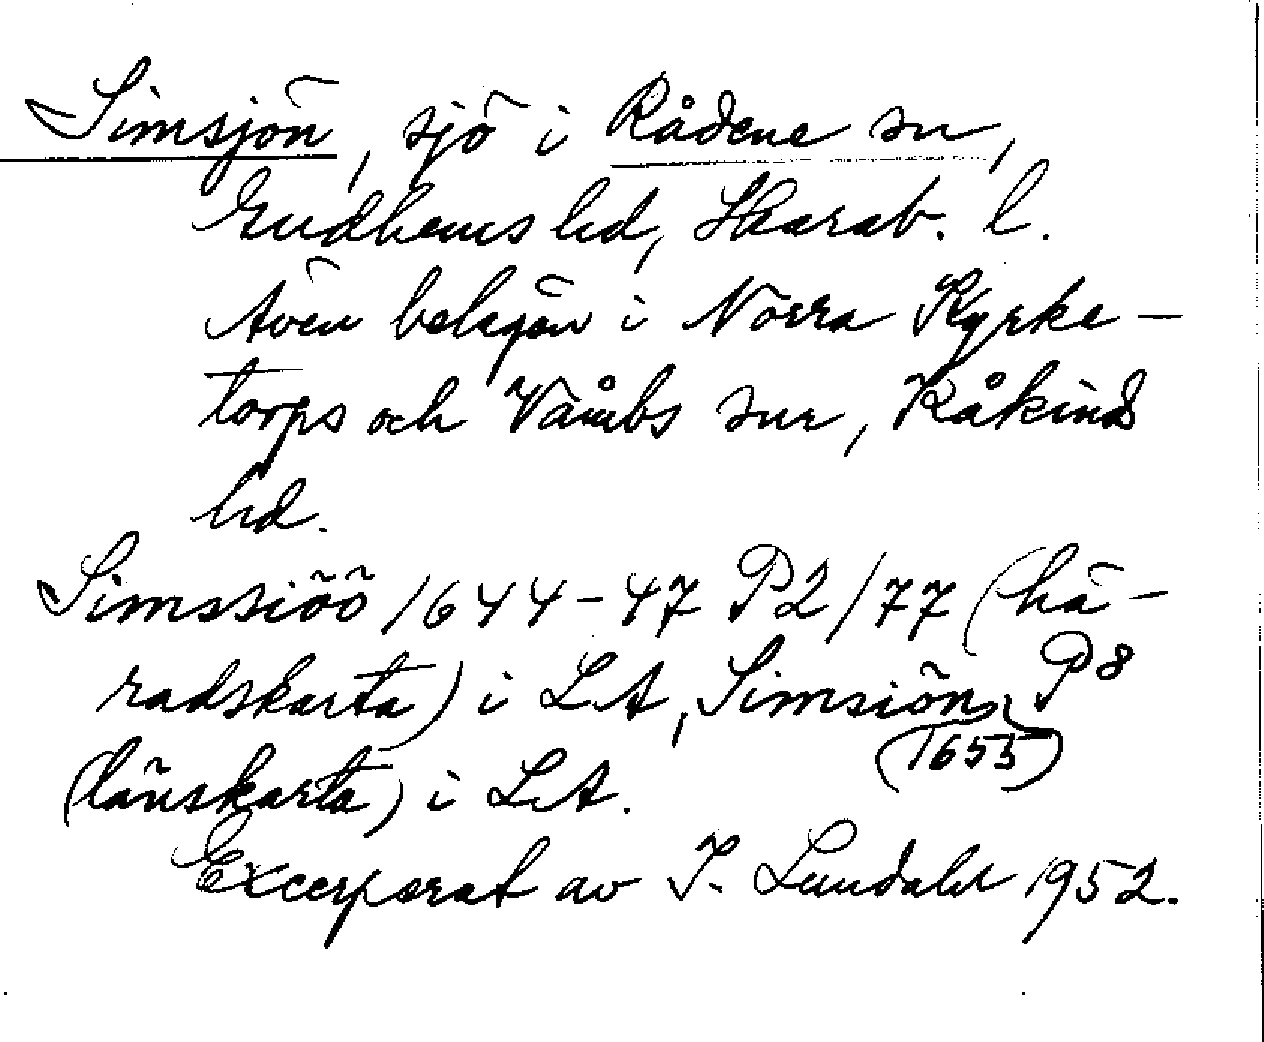 Simsjön, sjö i Rådene sn,
Gudhems hd, Skarab. l.
Även belägen i Norra Kyrke-
torps och Våmbs snr, Kåkinds
hd.
Simssiöö 1644-47 P2/77 (hä-
radskarta) i LA, Simsiön, P8
(1653)
(länskarta) i LA.
Excerperat av I. Lundahl 1952.